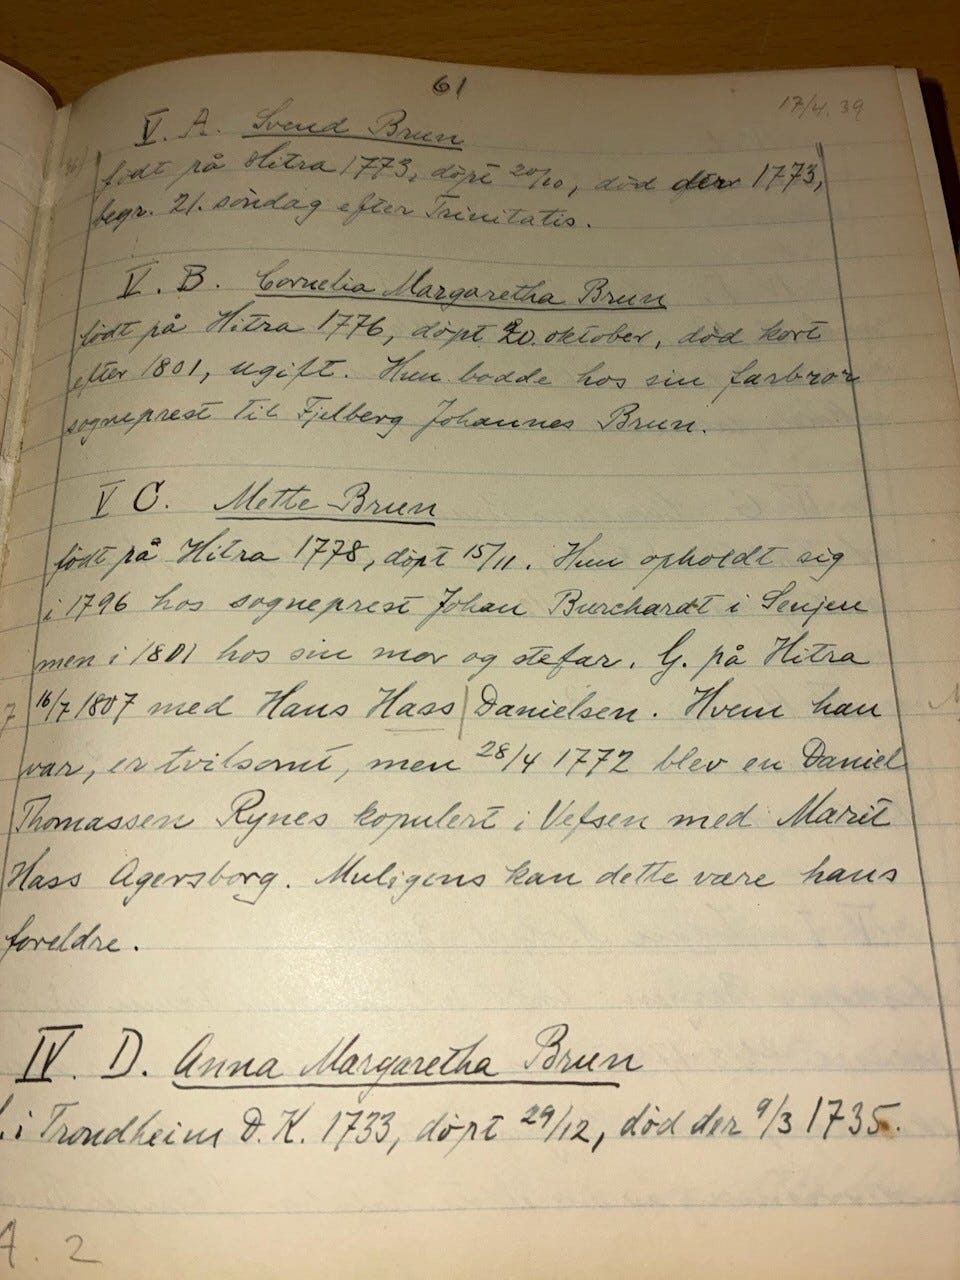 61
17/4. 39
V. A. Svend Brun
født på Hitra 1773, døpt 20/10, død der 1773,
begr. 21. søndag efter Trinitatis.
V. B. Cornelia Margaretha Brun
født på Hitra 1776, døpt 20. oktober, død kort
efter 1801, ugift. Hun bodde hos sin farbror
sogneprest til Fjelberg Johannes Brun.
V C. Mette Brun
født på Hitra 1778, døpt 15/11. Hun opholdt sig
i 1796 hos sogneprest Johan Burchardt i Senjen
men i 1801 hos sin mor og stefar. G. på Hitra
16/7 1807 med Hans Hass | Danielsen. Hvem han
var, er tvilsomt, men 28/4 1772 blev en Daniel
Thomassen Rynes kopulert i Vefsen med Marit
Hass Agersborg. Muligens kan dette være hans
foreldre.
IV. D. Anna Margaretha Brun
i Trondheim D. K. 1733, døpt 29/12, død der 9/3 1735.
A. 2